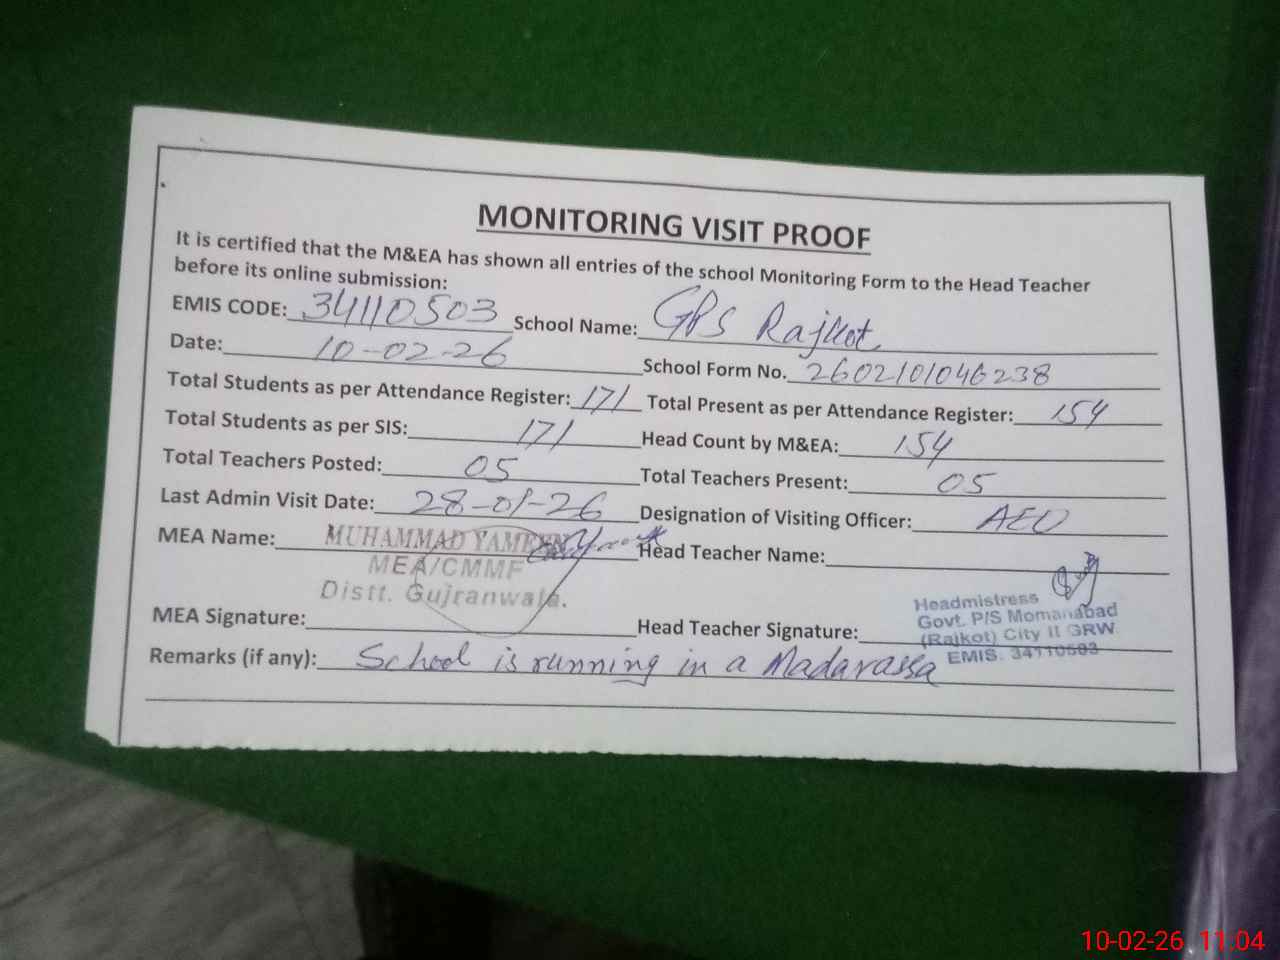 MONITORING VISIT PROOF
It is certified that the M&EA has shown all entries of the school Monitoring Form to the Head Teacher
before its online submission:
EMIS CODE: 34110503 School Name: GPS Rajkot
Date: 10-02-26 School Form No. 2602101046238
Total Students as per Attendance Register: 171 Total Present as per Attendance Register: 154
Total Students as per SIS: 171 Head Count by M&EA: 154
Total Teachers Posted: 05 Total Teachers Present: 05
Last Admin Visit Date: 28-01-26 Designation of Visiting Officer: AEO
MEA Name: MUHAMMAD YAMEEN Head Teacher Name:
MEA/CMMF
Distt. Gujranwala.
Headmistress
Govt. P/S Momanabad
(Rajkot) City II GRW
EMIS. 34110503
MEA Signature: Head Teacher Signature:
Remarks (if any): School is running in a Madarassa
10-02-26 11:04